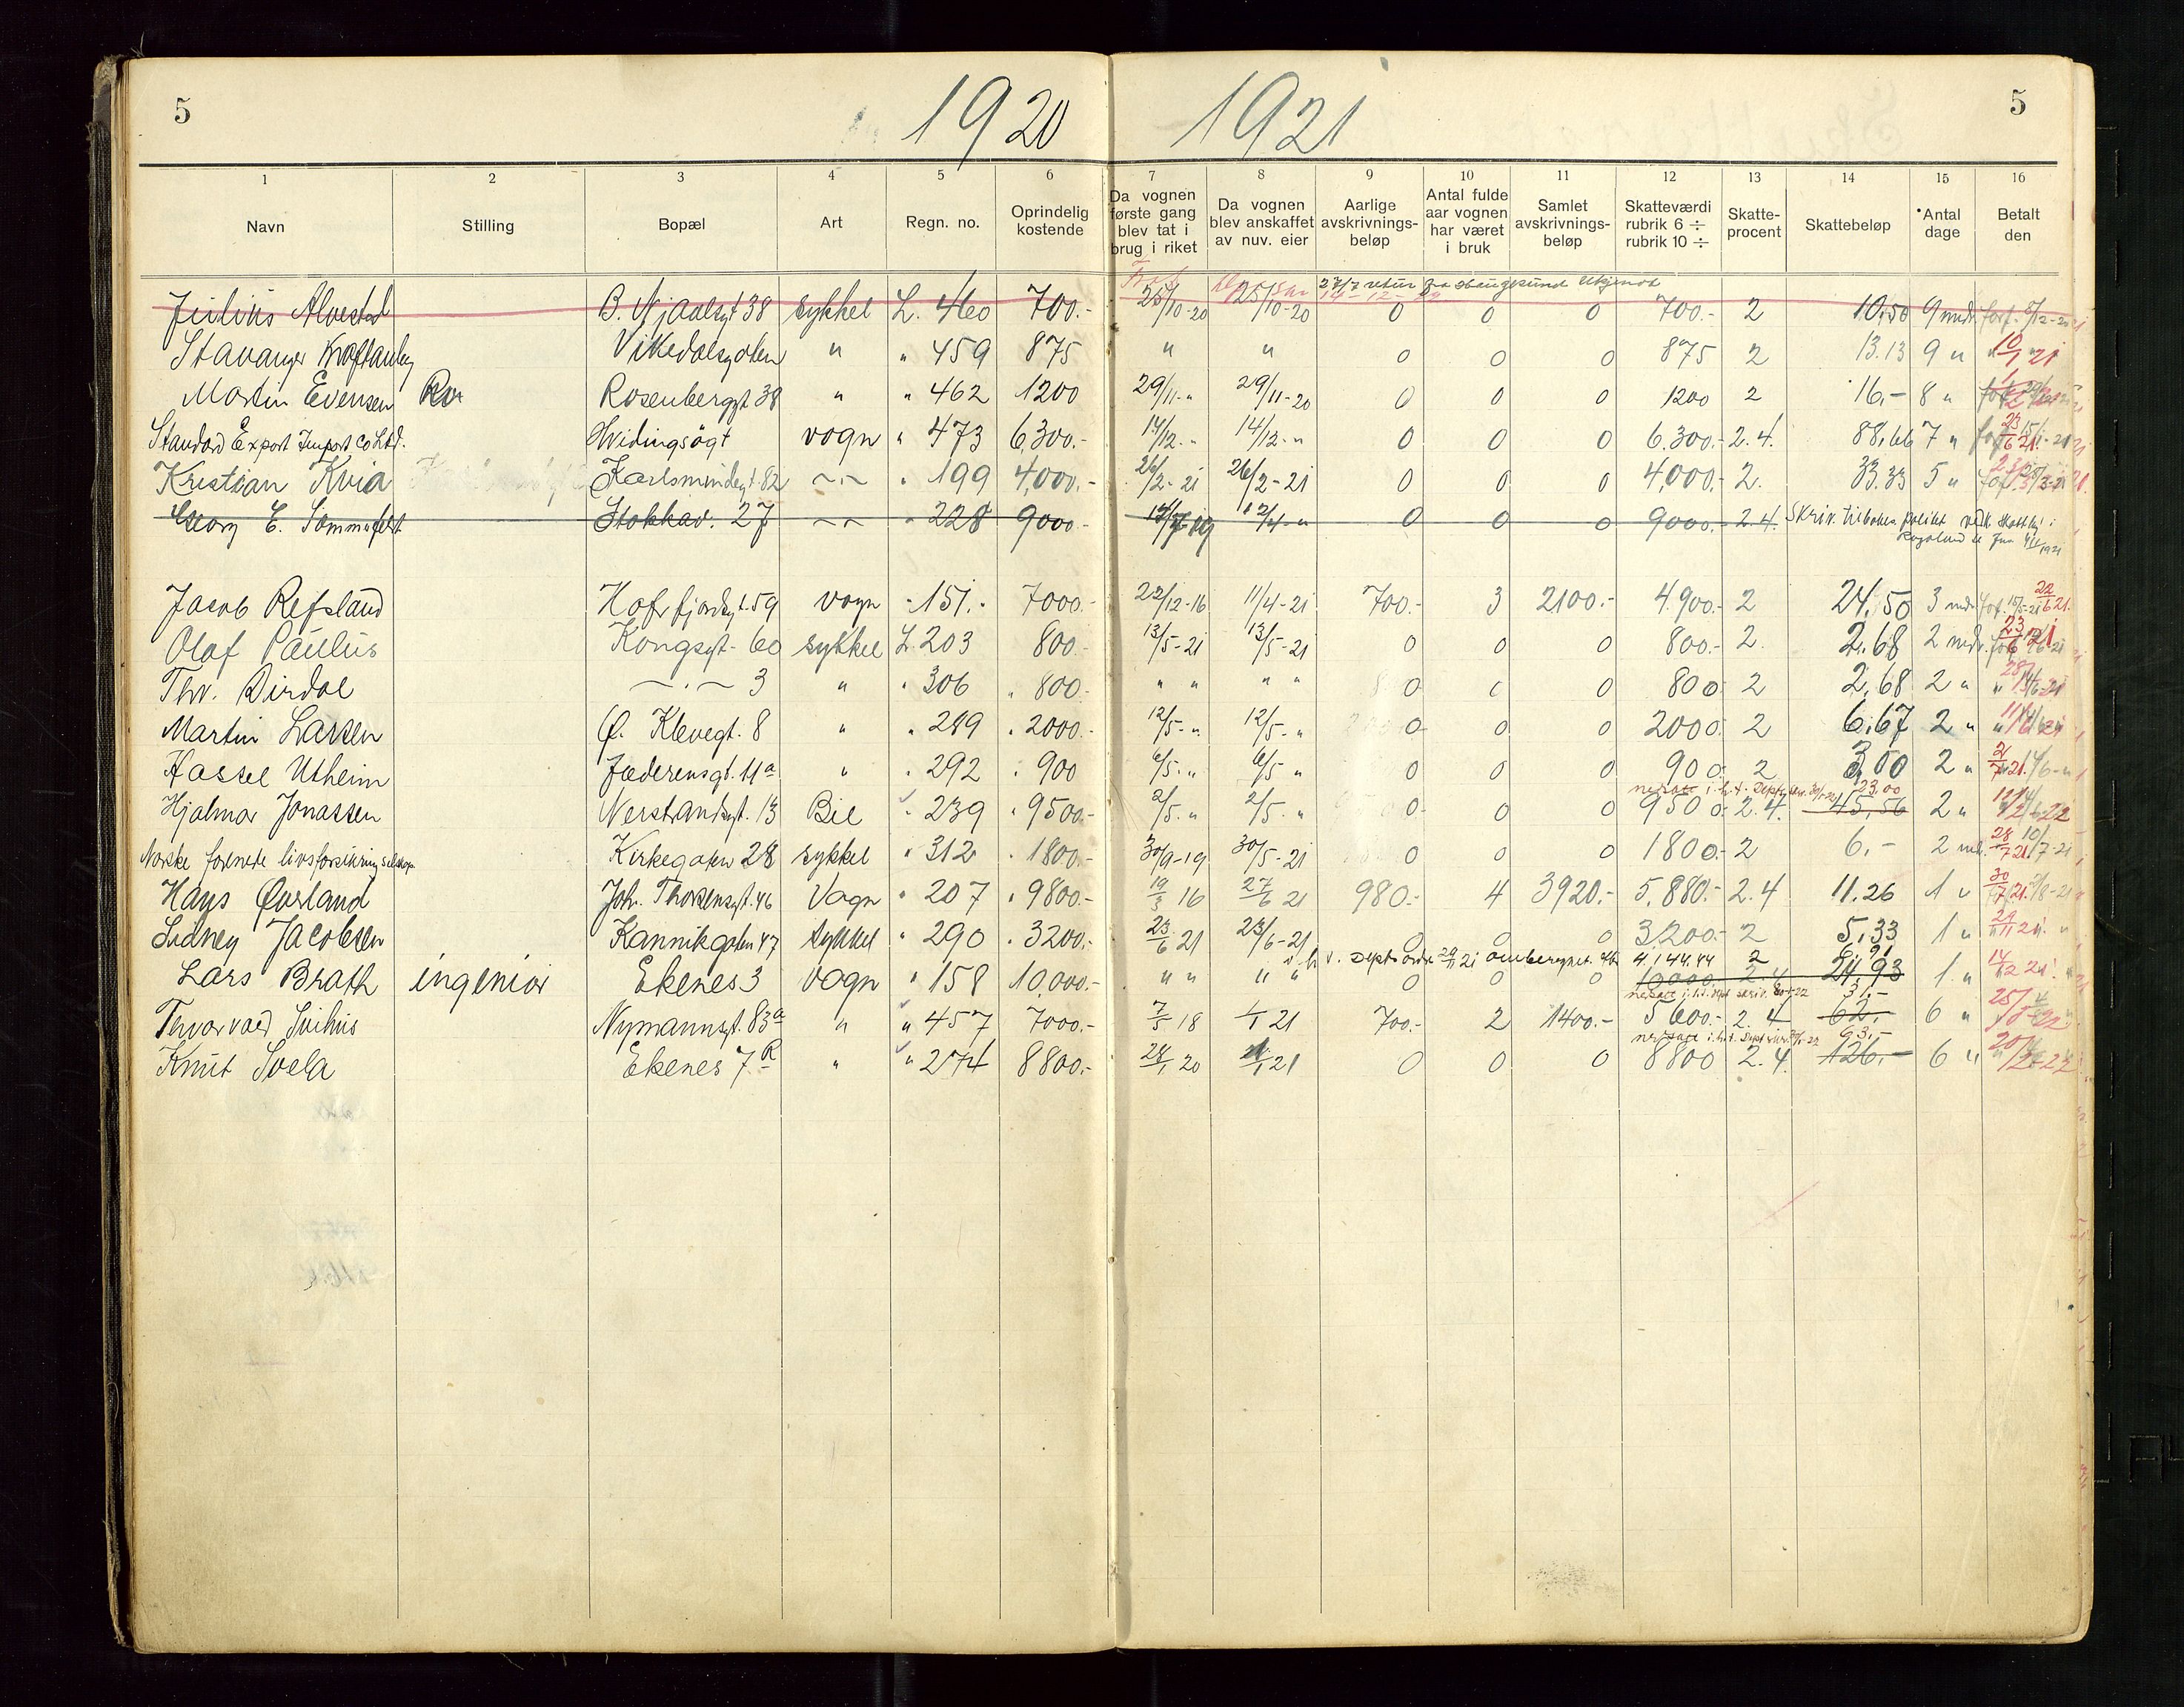 5 1920 1921 5
1 2 3 4 5 6 7 8 9 10 11 12 13 14 15 16
Navn Stilling Bopæl Art Regn. no. Oprindelig kostende Da vognen første gang blev tat i brug i riket Da vognen blev anskaffet av nuv. eier Aarlige avskrivnings-beløp Antal fulde aar vognen har været i bruk Samlet avskrivnings-beløp Skatteværdi rubrik 6 ÷ rubrik 10 ÷ Skatte-procent Skattebeløp Antal dage Betalt den
27/7 retur fra Haugesund
14-12-
Julius Alvestad B. Njaalsgt 38 sykkel L. 460 700.- 25/10-20 25/10-20 0 0 0 700.- 2 10,50 9 mndr forf.
Stavanger Vikedalsgaten " " 459 875 " " 0 0 0 875 2 13.13 9 " 10/1 21
Martin Evensen Rosenberggt 38 " " 462 1200 29/11-" 29/11-20 0 0 0 1200 2 16,- 8 "
Standard Export Import Co Ltd. Hvidingsögt vogn " 473 6,300.- 14/12-" 14/12-" 0 0 0 6.300.- 2.4. 88,66 7 "
Kristian Kvia Karlsmindegt. 82 -"- " 199 4,000.- 26/2-21 26/2-21 0 0 0 4,000.- 2. 33.33 5 "
Georg E. Sommerfelt Stokkav. 27 -"- " 228 9000.- 12/4-" 0 0 0 9000.- 2.4. Skriv. tilbake
Rogaland
Jacob Refsland Hafrsfjordgt. 59 vogn " 151.- 7000.- 22/12-16 11/4-21 700.- 3 2100.- 4.900.- 2 24,50 3 mdr 22/6 21.
Olaf Paulus Kongsgt- 60 sykkel L 203 800.- 13/5-21 13/5-21 0 0 0 800.- 2. 2,68 2 mdr.
Thv. Dirdal -"- 3 " " 306 " 800.- " " " " 0 0 0 800 2 2,68 2 "
Martin Larsen Ø. Klevegt. 8 " " 289 " 2000.- 12/5-" 12/5-" 0 0 0 2000 2 6,67 2 "
Hassel Utheim Jæderensgt. 11a " " 292 " 900 6/5-" 6/5 " 0 0 0 900 2 3,00 2 "
nedsatt i.h.t. 23,00
Hjalmar Jonassen Nerstrandsgt. 13 Bil " 239 " 9500.- 2/5-" 2/5-" 0 0 0 9500 2.4. 45,56 2 "
Norske forenede livsforsikringsselskap Kirkegaten 28 sykkel " 312 " 1800.- 30/9-19 30/5-21 0 0 0 1800.- 2 6.- 2
Hans Øvrland Joh. Thorsensgt. 46 Vogn " 207 " 9800.- 19/3 16 27/6 21 980.- 4 3920.- 5.880.- 2.4 11.26 1 "
Sidney Jacobsen Kannikgaten 47 sykkel " 290 " 3200.- 23/6 21 23/6-21 0 0 0 3,200.- 2 5,33 1 "
i.h.t. Depts ordre omberegnet 4.144.44 2
Lars Brath ingeniør Ekenes 3 vogn " 158 10,000.- " " " " 0 0 0 10000.- 2.4 24,93 1 "
nedsatt i.h.t. Dept skriv. 31.-
Thorvald Svihus Nymannsgt. 83a " " 457 7000.- 7/5 18 1/1 21 700.- 2 1400.- 5600.- 2.4 62,- 6 "
nedsatt i.h.t. Dept 93.-
Knut Soela Ekenes 7 " " 274 8800.- 28/1 20 1/1 21 0 0 0 8800 2.4. 126.- 6 "